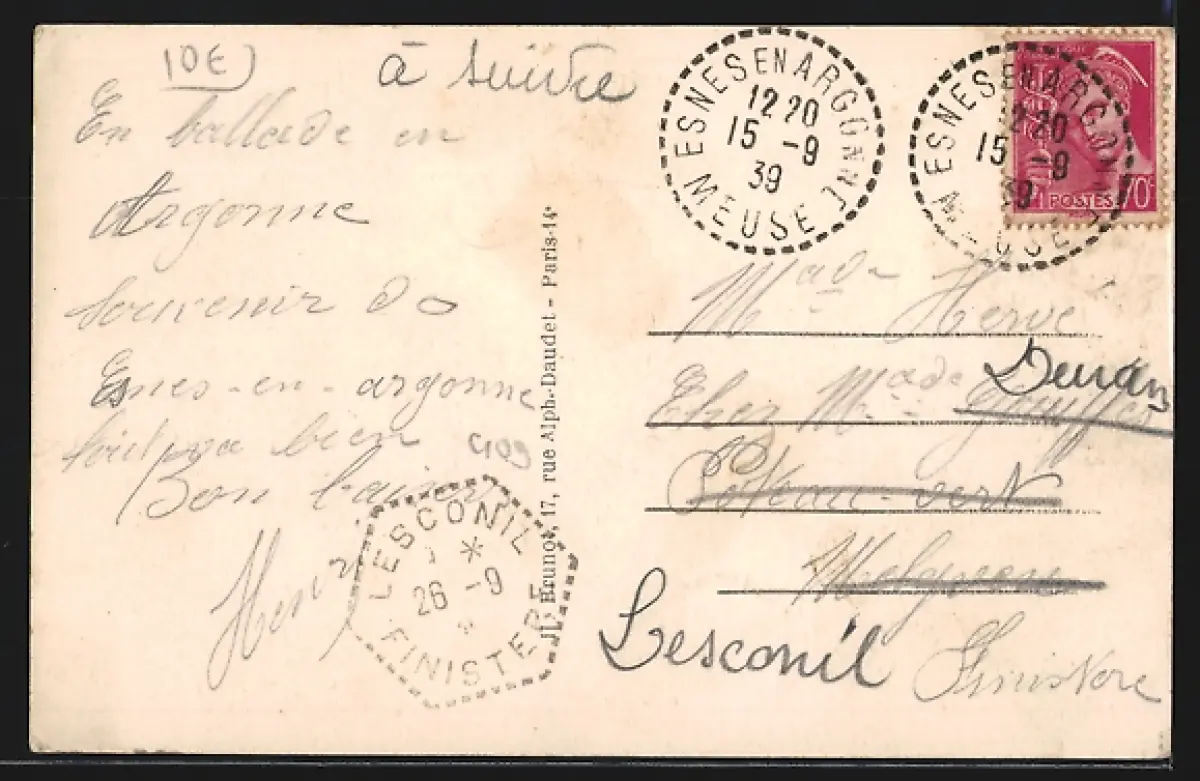 10E)
à suivre
En ballade en
Argonne
souvenir d
Esnes-en-argonne
tout va bien
Bon baiser
Henri
409
LESCONIL
26 -9
FINISTERE
JL. Brunot, 17, rue Alph.-Daudet - Paris-14e
ESNES EN ARGONNE
12 20
15 -9
39
MEUSE
ESNES EN ARGONNE
12 20
15 -9
39
MEUSE
POSTES 70c
Made Hervé
Chez Made
Poteau-vert
Lesconil Finistère